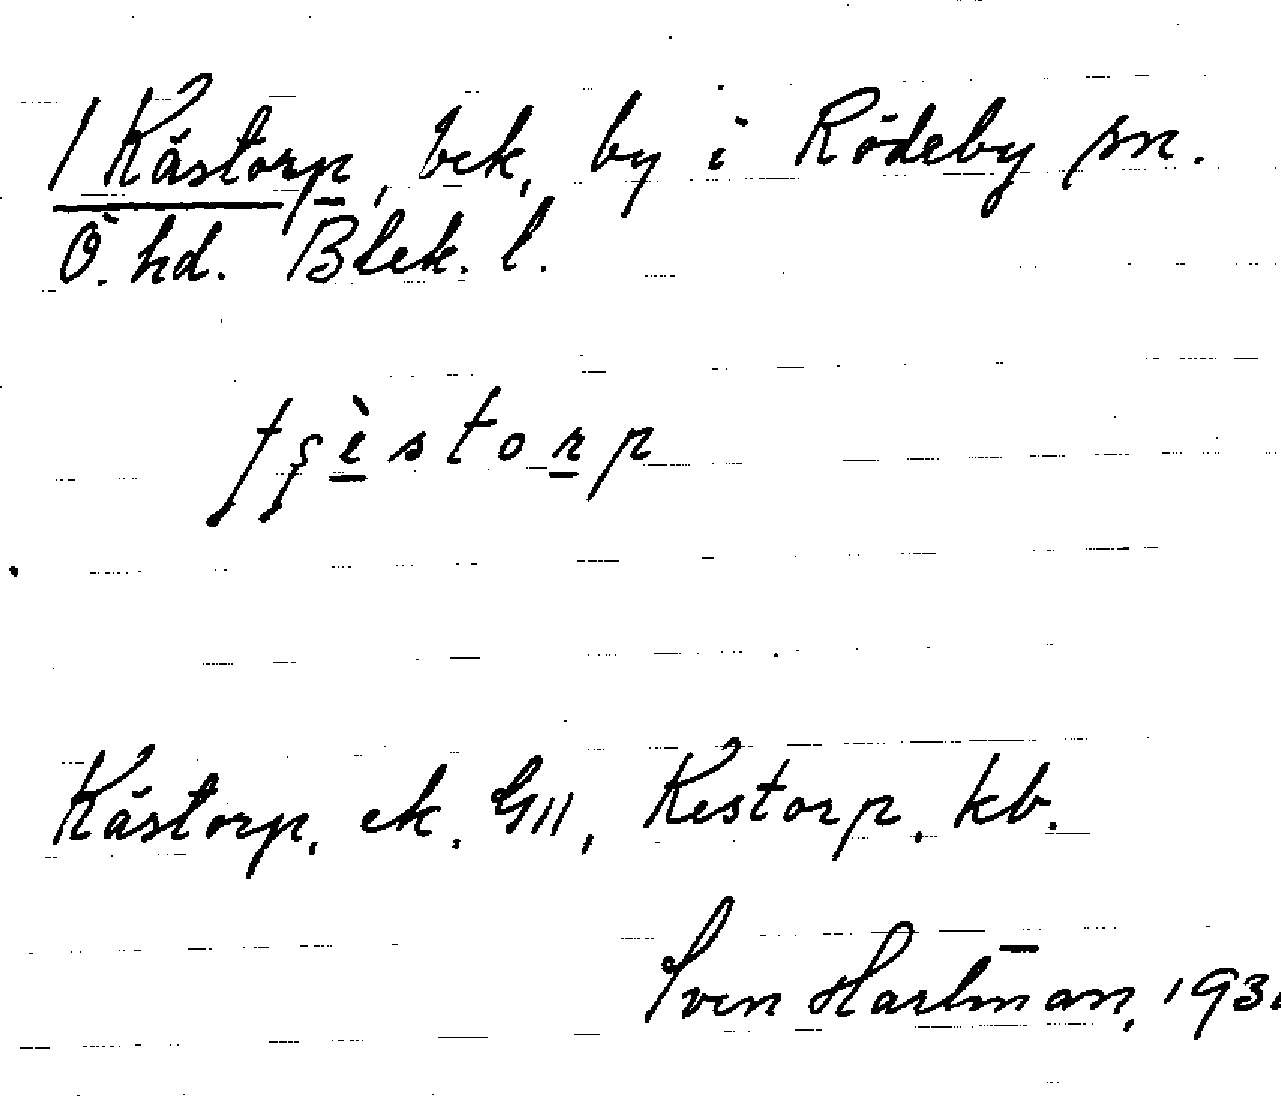 1 Kästorp, bek, by i Rödeby sn.
Ö. hd. Blek. l.
tʂèstorp
Kästorp, ek. GII, Kestorp, kb.
Sven Hartman, 193